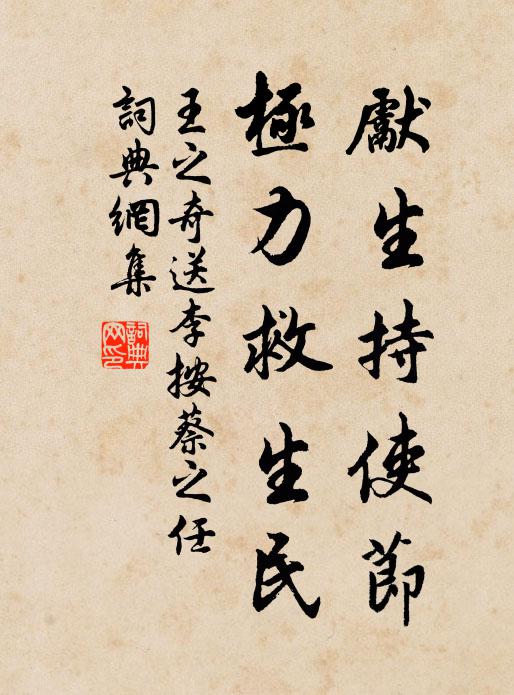 獻生持使節
極力救生民
王之奇送李按蔡之任
詞典網集
詞典
网印